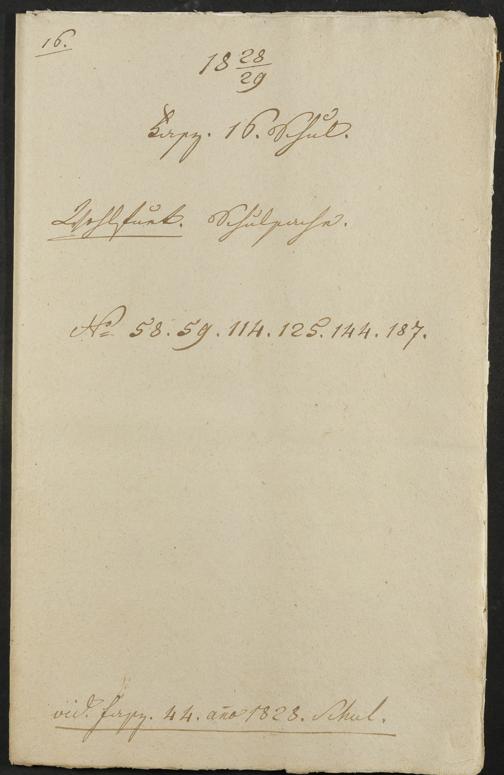 16.
18 28/29
Fasz. 16. Schul.
Wohlfurt. Schulsache.
No 58. 59. 114. 125. 144. 187.
vid. Fasz. 44. año 1828. Schul.